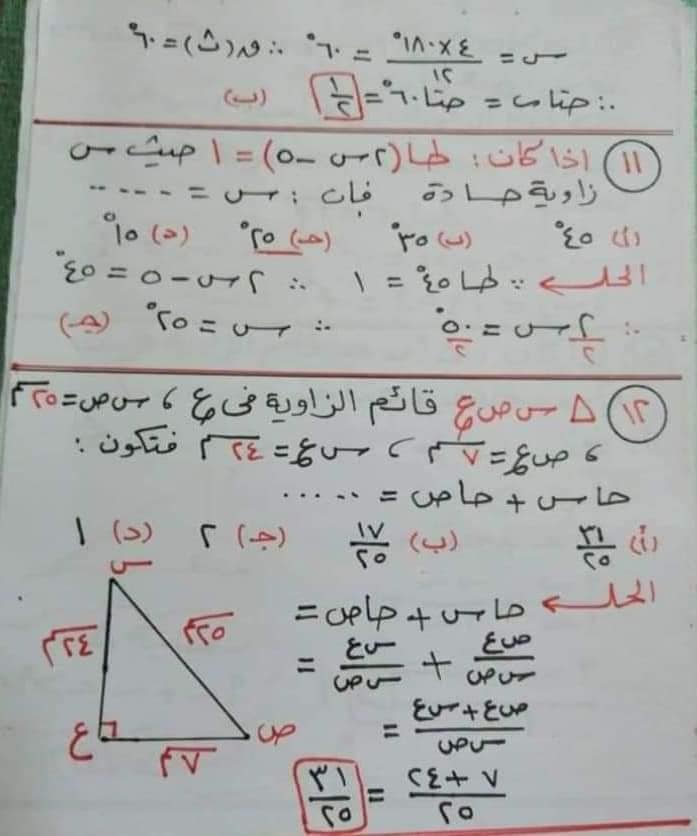 س = ٤ × ١٨٠° / ١٢ = ٦٠° ∴ ق(ث) = ٦٠°
∴ جتا ث = جتا ٦٠° = ١/٢ (ب)
(١١) اذا كان : طا (٢س - ٥) = ١ حيث س
زاوية حادة فإن : س = .....
(أ) ٤٥° (ب) ٣٥° (جـ) ٢٥° (د) ١٥°
الحل ← ∵ طا ٤٥° = ١ ∴ ٢س - ٥ = ٤٥°
∴ ٢س/٢ = ٥٠°/٢ ∴ س = ٢٥° (جـ)
(١٢) △ س ص ع قائم الزاوية فى ع ، س ص = ٢٥ سم
، ص ع = ٧ سم ، س ع = ٢٤ سم فتكون :
جا س + جا ص = .....
(أ) ٣١/٢٥ (ب) ١٧/٢٥ (جـ) ٢ (د) ١
الحل ← جا س + جا ص =
ص ع/س ص + س ع/س ص =
ص ع + س ع/س ص =
٧ + ٢٤/٢٥ = ٣١/٢٥
س
٢٤ سم
٢٥ سم
ع
ص
٧ سم